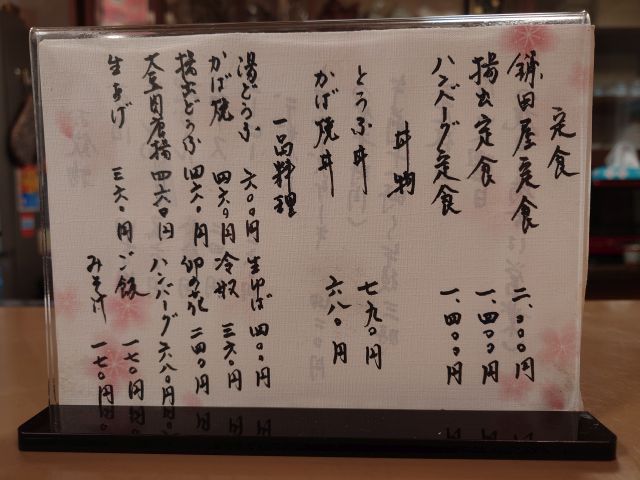 定食
鎌田屋定食 二、〇〇〇円
揚出定食 一、四〇〇円
ハンバーグ定食 一、四〇〇円
丼物
とうふ丼 七九〇円
かば焼丼 六八〇円
一品料理
湯どうふ 六〇〇円 生ゆば 四〇〇円
かば焼 四六〇円 冷奴 三六〇円
揚出どうふ 四六〇円 卯の花 二四〇円
大豆肉唐揚 四六〇円 ハンバーグ 六八〇円
生あげ 三六〇円 ご飯 一七〇円
みそ汁 一七〇円